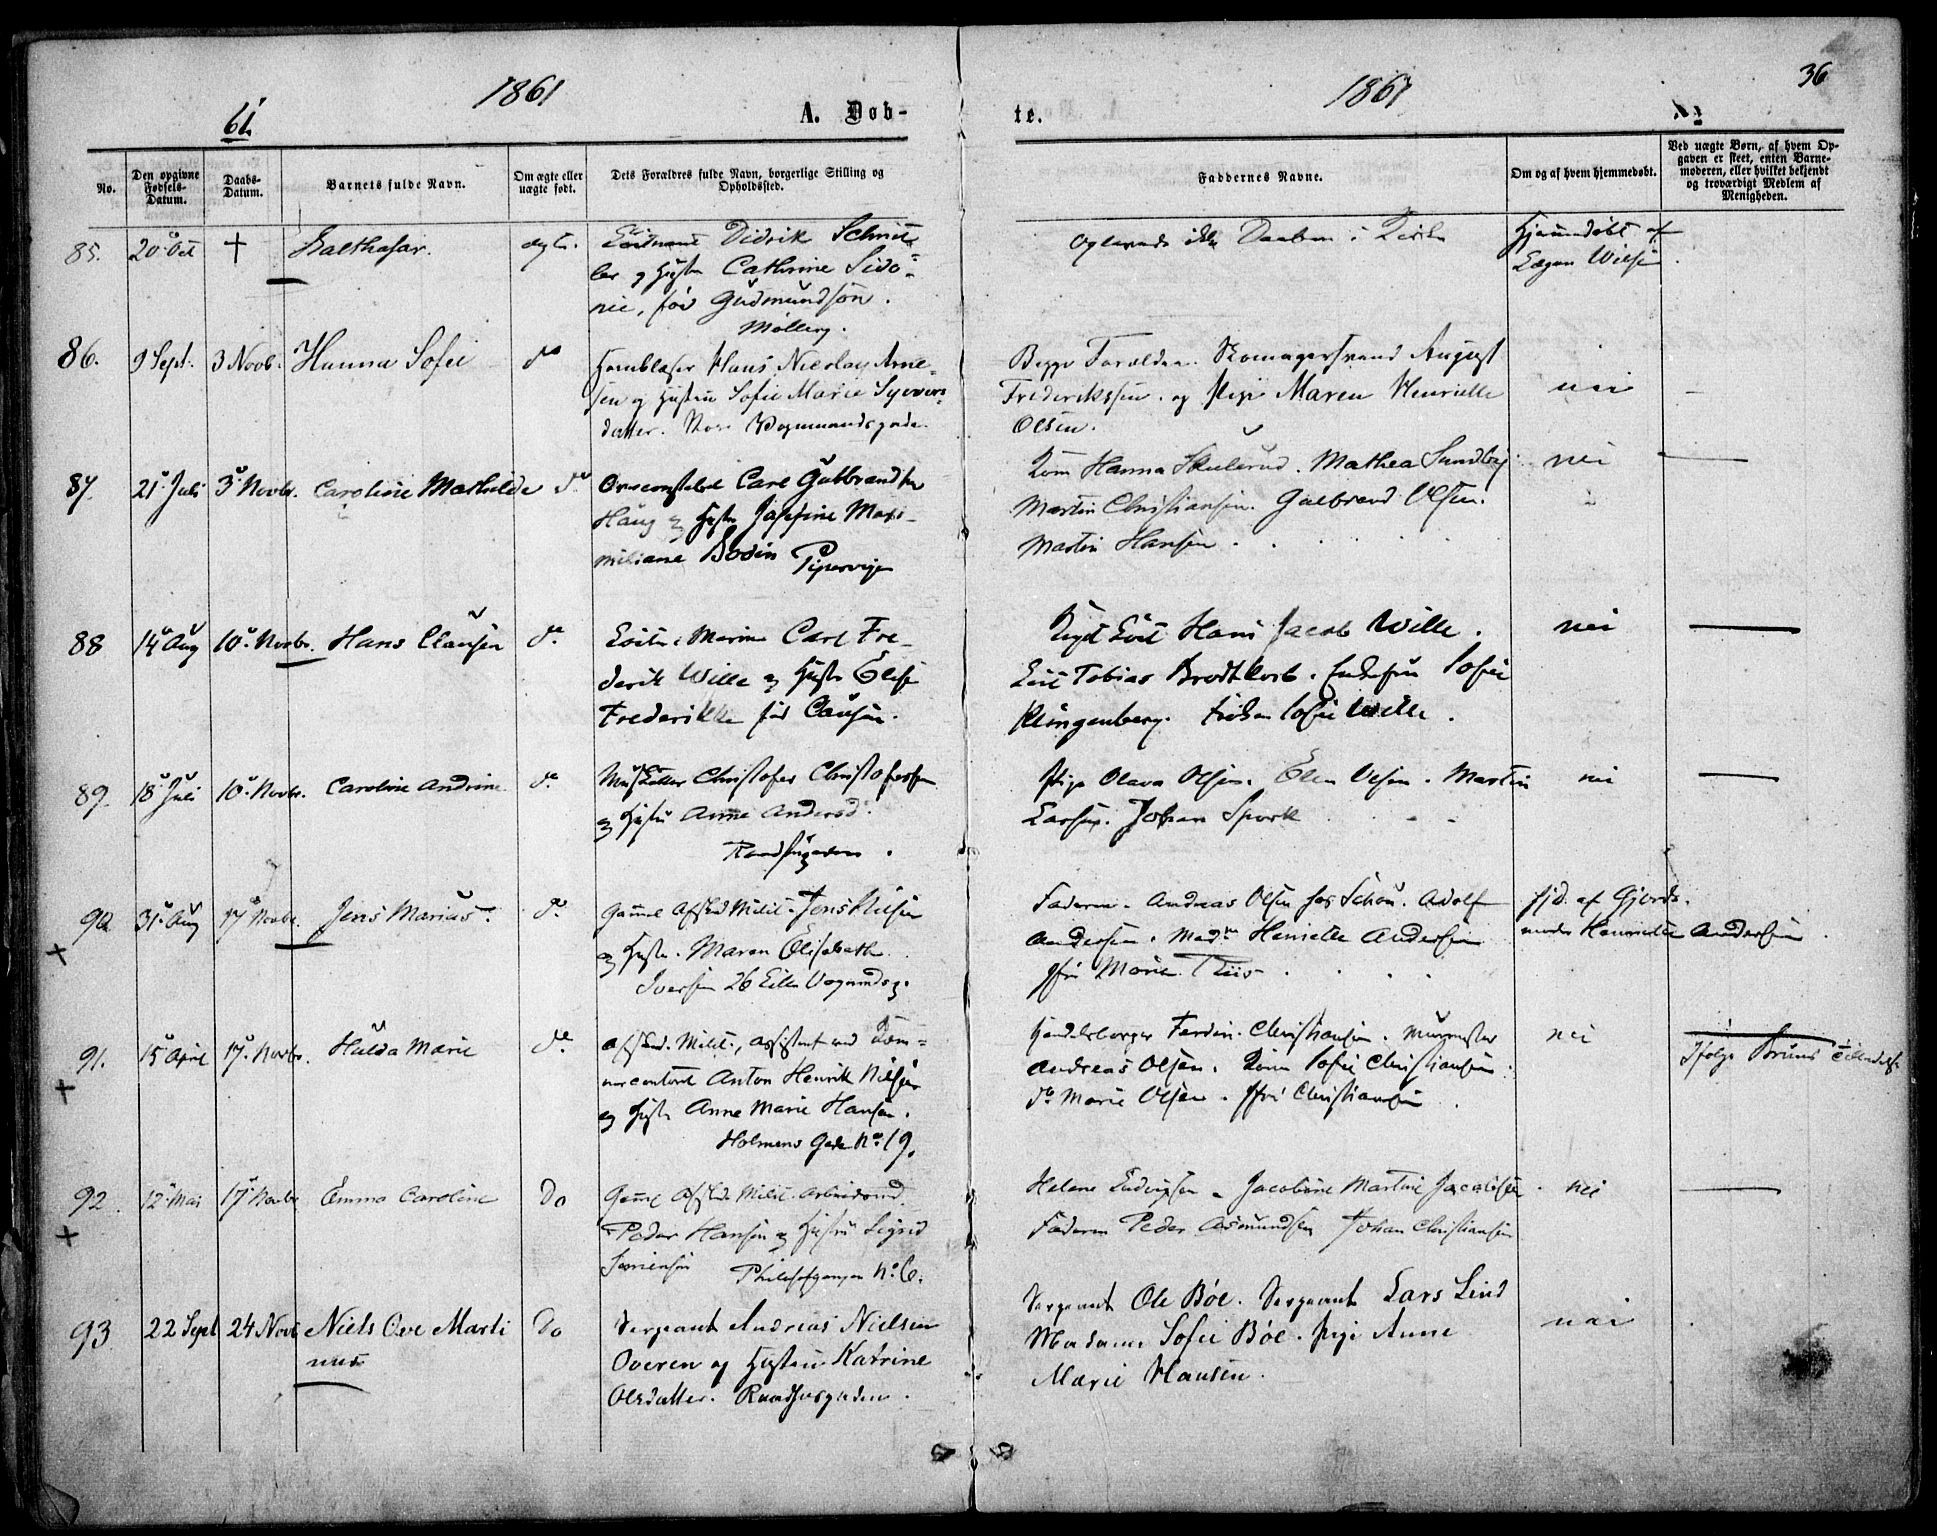 1861
1861
36
61.
A. Døb-
te.
No.
Den opgivne Fødsels-Datum.
Daabs-Datum.
Barnets fulde Navn.
Om ægte eller uægte født.
Dets Forældres fulde Navn, borgerlige Stilling og Opholdssted.
Faddernes Navne.
Om og af hvem hjemmedøbt.
Ved uægte Børn, af hvem Opgaven er skeet, enten Barnemoderen, eller hvilket bekjendt og troværdigt Medlem af Menigheden.
85. 20 Oct † Balthasar. ægte. Didrik Schnit-
ler og Hustru Cathrine Sido-
nie, fød Gudmundson.
Møllerg.
Oplevede ikke Daaben i Kirken
Hjemmedøbt af
Lægen Wilse
86. 9 Sept. 3 Novb. Hanna Sofie do Hornblæser Hans Nicolay Arne-
sen og Hustru Sofie Marie Syvers-
datter. Store Vognmandsgade.
Begge Forældre. Skomagersvend August
Frederikssen. og Pige Maren Henriette
Olsen.
nei
87. 21 Juli 3 Novbr. Caroline Mathilde do Carl Gulbrandsen
Haug og Hustru Josefine Maxi-
miliane Bodin Pipervigen
Kone Hanna Skulerud. Mathea Sundby.
Martin Christiansen. Gulbrand Olsen.
Martin Hansen.
nei
88 14 Aug 10 Novbr. Hans Clausen do Marine Carl Fre-
derik Wille og Hustru Elise
Frederikke fød Clausen.
Hans Jacob Wille.
Tobias Brodtkorb. Sofie
Klingenberg. Frøken Sofie Wille.
nei
89. 18 Juli 10 Novbr. Caroline Andrine do Musketter Christofer Christofersen
og Hustru Anne Andersd.
Raadhusgaden.
Pige Olava Olsen. Elen Olsen. Martin
Larsen. Johan Spork
nei
90 31 Aug 17 Novbr. Jens Marius. do Gamml Afsked Milit. Jens Nilsen
og Hustr. Maren Elisabeth
Iversen 26 Lille Vognmdsg.
Faderen. Andreas Olsen hos Schou. Adolf
Andersen. Mad. Henriette Andersen
Jfr Marie Riis
Hjd. af Gjorde-
moder Henriette Andersen.
+
91. 15 April 17 Novbr. Hulda Marie do Afsked. Milit., Assistent ved
Anton Henrik Nilsen
og Hustr Anne Marie Hansen.
Holmens Gade No. 19.
Handelsborger Ferdin. Christiansen. Murmester
Andreas Olsen. Kone Sofie Christiansen.
do Marie Olsen. Jfr Christiansen.
nei
Ifølge Bruns
+
92. 12 Mai 17 Novbr Emma Caroline Do Gamml Afsked Milit. Arbeidsmd.
Peder Hansen og Hustru Sigrid
Sørensen Philosofgangen No. 6.
Helene Ludvigsen. Jacobine Martine Jacobsen.
Faderen Peder Asmundsen Johan Christiansen
nei
+
93 22 Sept 24 Novb Niels Ove Marti
nus
Do Sergeant Andreas Nielsen
Overen og Hustru Katrine
Olsdatter. Raadhusgaden.
Sergeant Ole Bøe. Sergeant Lars Lind
Madame Sofie Bøe. Pige Anne
Marie Hansen.
nei